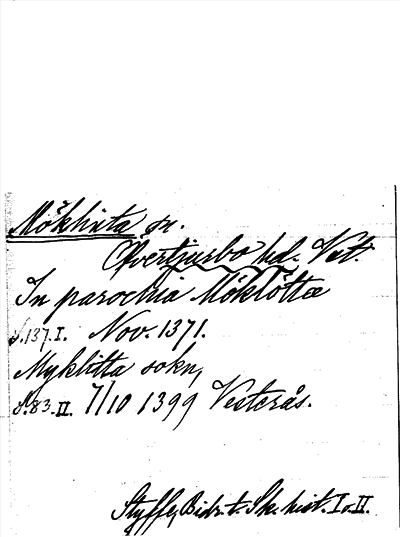 Möklinta sn.
Övertjurbo hd. Vst.
In parochia Möklötta
S.137.I. Nov. 1371.
Myklitta sokn,
S.83.II. 7/10 1399 Vesterås.
Styffe, Bidr. t. Sk. hist. I o. II.